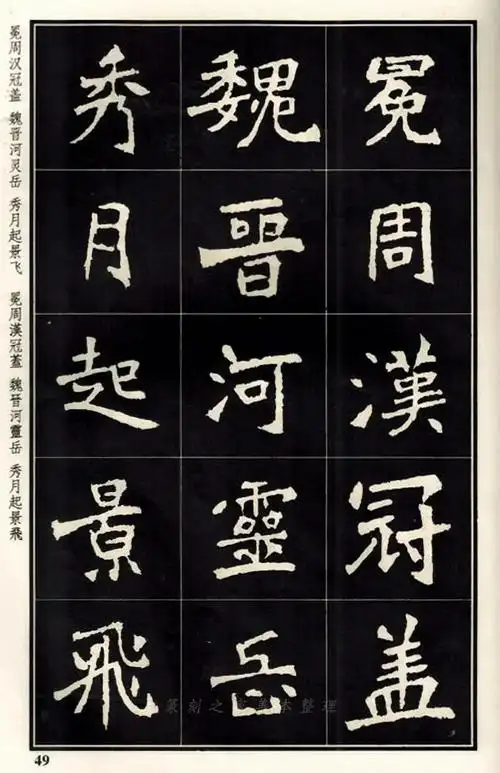 冕周漢冠盖
魏晉河靈岳
秀月起景飛
冕周汉冠盖 魏晋河灵岳 秀月起景飞 冕周漢冠蓋 魏晉河靈岳 秀月起景飛
49